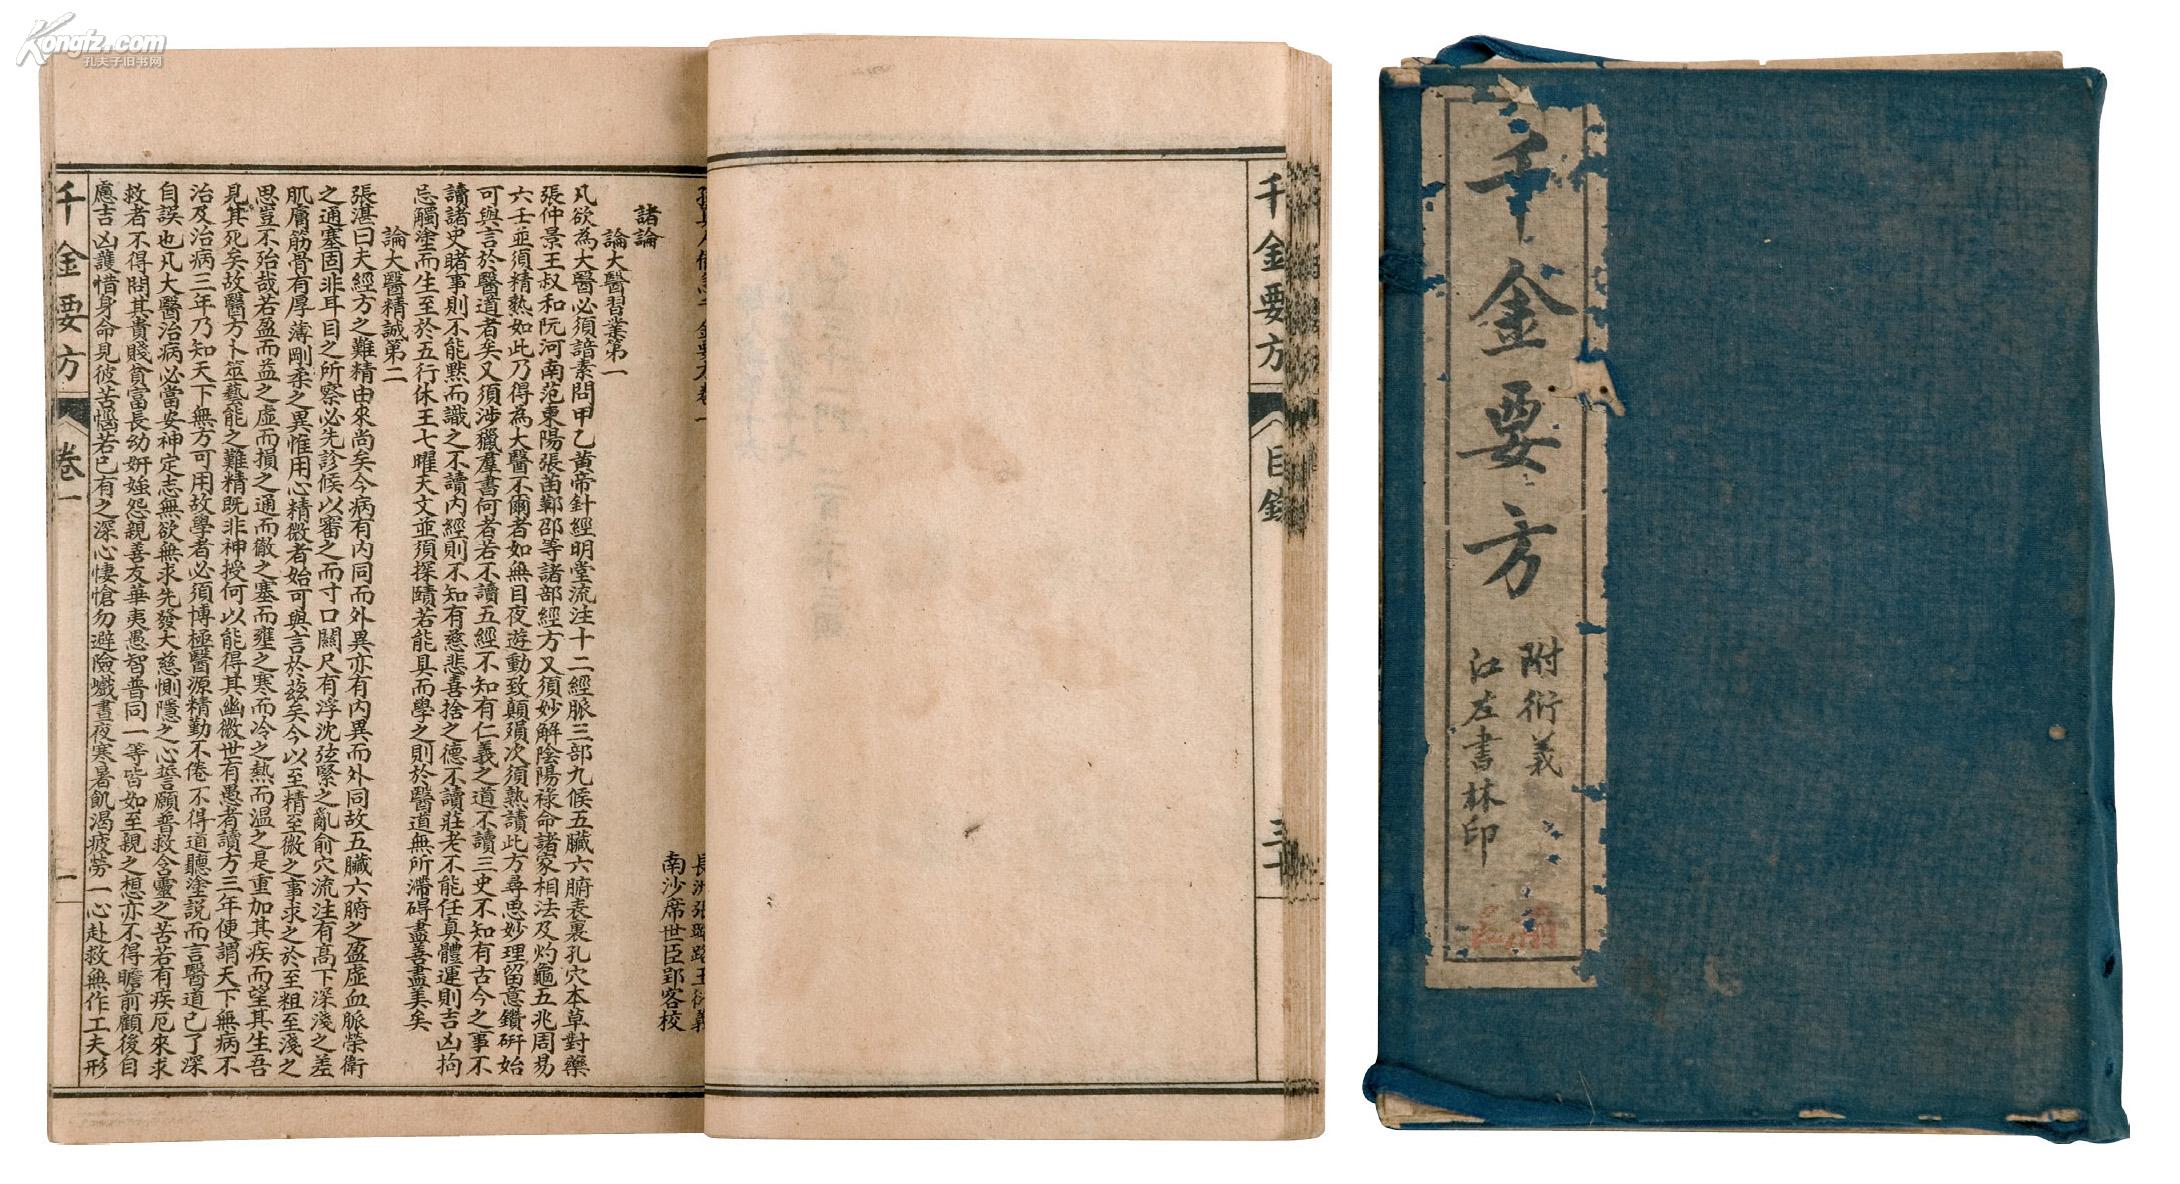 Kongfz.com
孔夫子旧书网
千金要方
附衍義
江左書林印
千金要方
目錄
三十
千金要方卷一
南沙席世臣郢客校
諸論
論大醫習業第一
凡欲為大醫必須諳素問甲乙黃帝針經明堂流注十二經脈三部九候五臟六腑表裏孔穴本草對藥
張仲景王叔和阮河南范東陽張苗靳邵等諸部經方又須妙解陰陽祿命諸家相法及灼龜五兆周易
六壬並須精熟如此乃得為大醫不爾者如無目夜遊動致顛殞次須熟讀此方尋思妙理留意鑽研始
可與言於醫道者矣又須涉獵羣書何者若不讀五經不知有仁義之道不讀三史不知有古今之事不
讀諸史睹事則不能默而識之不讀內經則不知有慈悲喜捨之德不讀莊老不能任真體運則吉凶拘
忌觸塗而生至於五行休王七曜天文並須探賾若能具而學之則於醫道無所滯碍盡善盡美矣
論大醫精誠第二
張湛曰夫經方之難精由來尚矣今病有內同而外異亦有內異而外同故五臟六腑之盈虛血脈榮衛
之通塞固非耳目之所察必先診候以審之而寸口關尺有浮沈弦緊之亂俞穴流注有高下深淺之差
肌膚筋骨有厚薄剛柔之異惟用心精微者始可與言於茲矣今以至精至微之事求之於至粗至淺之
思豈不殆哉若盈而益之虛而損之通而徹之塞而壅之寒而冷之熱而温之是重加其疾而望其生吾
見其死矣故醫方卜筮藝能之難精既非神授何以能得其幽微世有愚者讀方三年便謂天下無病不
治及治病三年乃知天下無方可用故學者必須博極醫源精勤不倦不得道聽塗説而言醫道已了深
自誤也凡大醫治病必當安神定志無欲無求先發大慈惻隱之心誓願普救含靈之苦若有疾厄來求
救者不得問其貴賤貧富長幼妍媸怨親善友華夷愚智普同一等皆如至親之想亦不得瞻前顧後自
慮吉凶護惜身命見彼苦惱若已有之深心悽愴勿避險巇晝夜寒暑飢渴疲勞一心赴救無作工夫形
千金要方
卷一
一